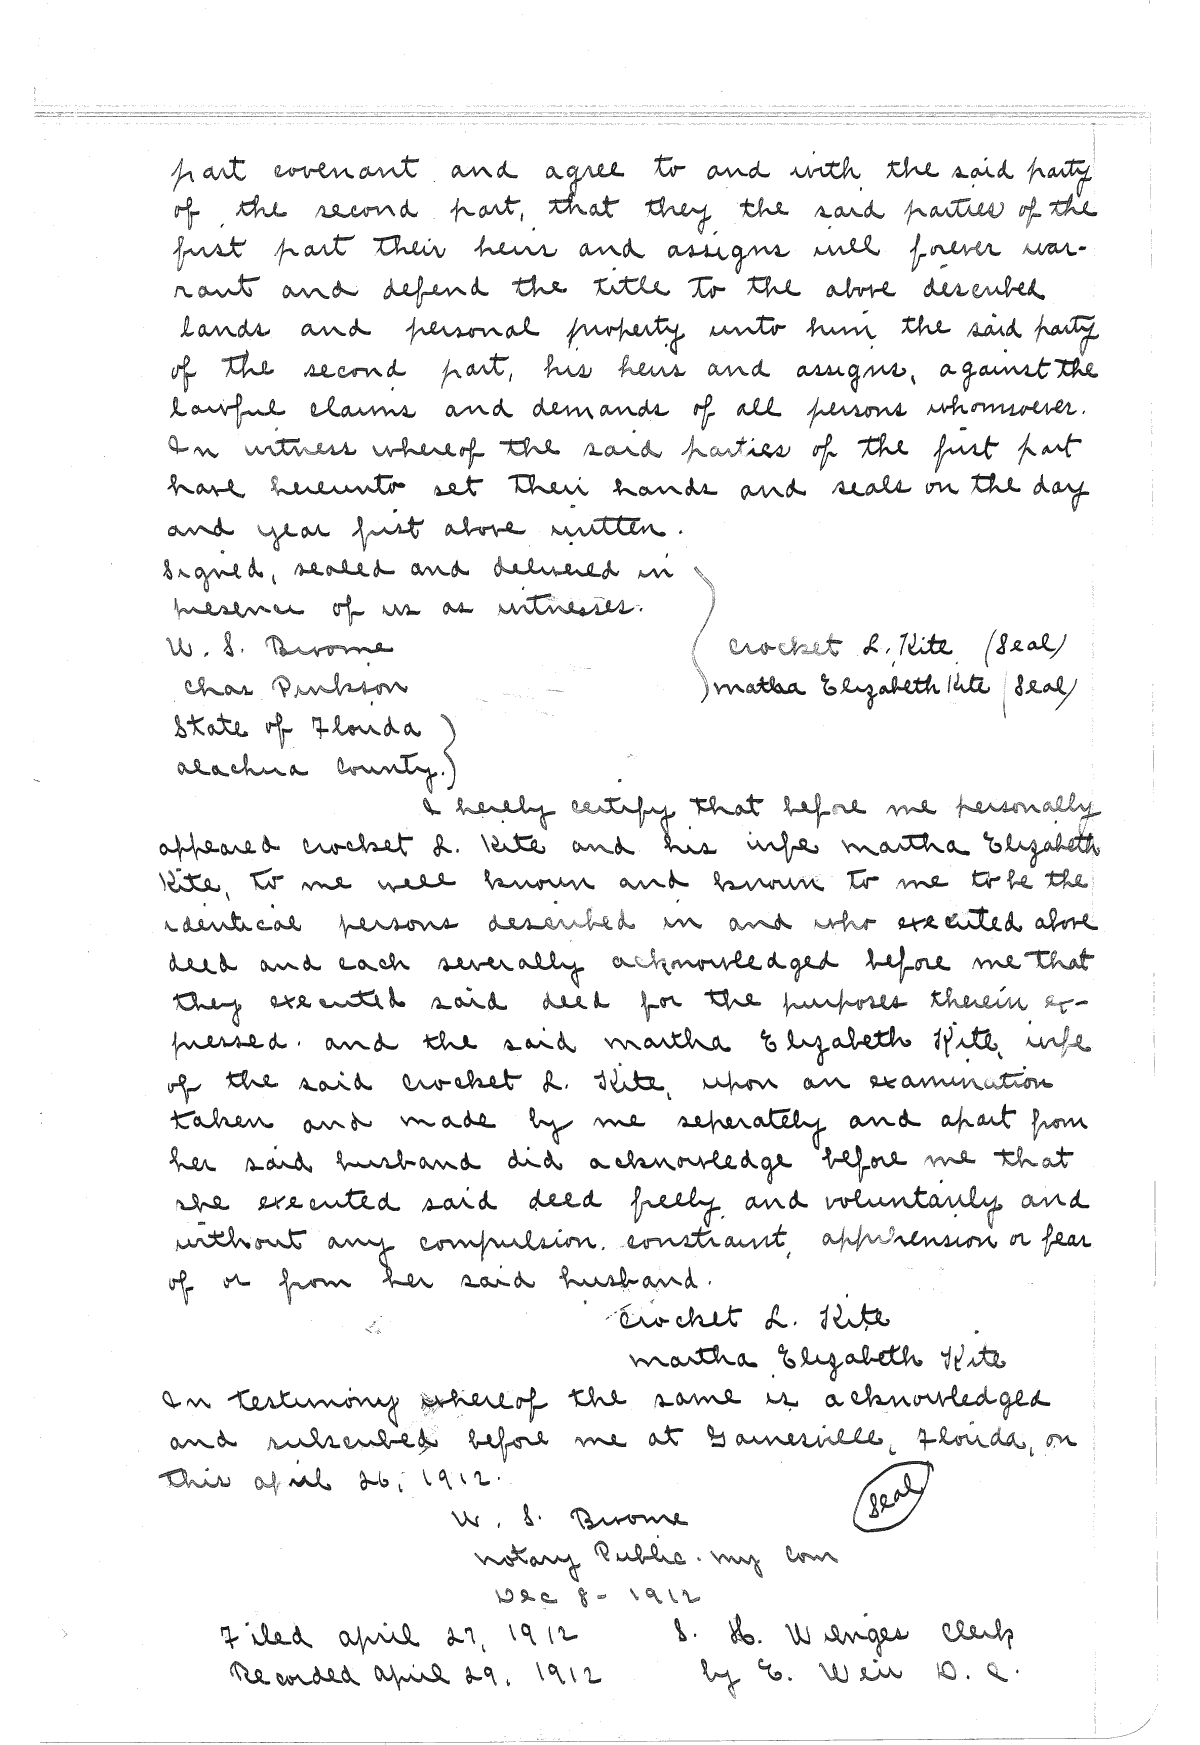 part covenant and agree to and with the said party
of the second part, that they the said parties of the
first part their heirs and assigns will forever war-
rant and defend the title to the above described
lands and personal property unto him the said party
of the second part, his heirs and assigns, against the
lawful claims and demands of all persons whomsoever.
In witness whereof the said parties of the first part
have hereunto set their hands and seals on the day
and year first above written.
Signed, sealed and delivered in
presence of us as witnesses.
W. S. Broome
Crocket L. Kite (Seal)
Chas Pinkson
Matha Elizabeth Kite (Seal)
State of Florida
Alachua County.
I hereby certify that before me personally
appeared Crocket L. Kite and his wife Martha Elizabeth
Kite, to me well known and known to me to be the
identical persons described in and who executed above
deed and each severally acknowledged before me that
they executed said deed for the purposes therein ex-
pressed. and the said Martha Elizabeth Kite, wife
of the said Crocket L. Kite, upon an examination
taken and made by me seperately and apart from
her said husband did acknowledge before me that
she executed said deed freely and voluntarily and
without any compulsion, constraint, apprehension or fear
of or from her said husband.
Crocket L. Kite
Martha Elizabeth Kite
In testimony whereof the same is acknowledged
and subscribed before me at Gainesville, Florida, on
this April 26, 1912.
Seal
W. S. Broome
Notary Public. my com
Dec 8 - 1912
Filed April 27, 1912 S. H. Wienges Clerk
Recorded April 29, 1912 by E. Weir D. C.